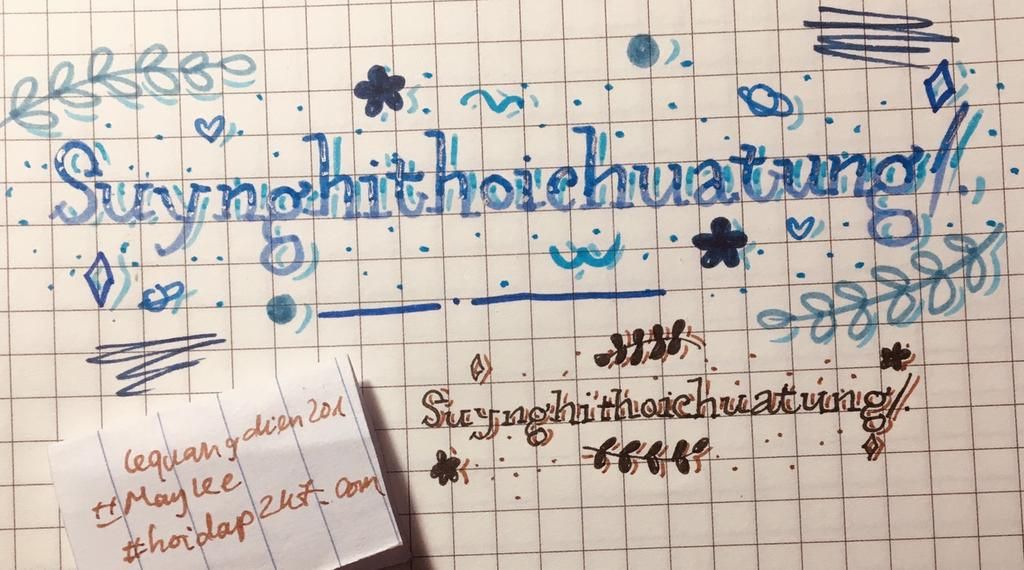 Suynghithoichuatung/.
Suynghithoichuatung/.
lequangdien201
#MayLee
#hoidap247.com